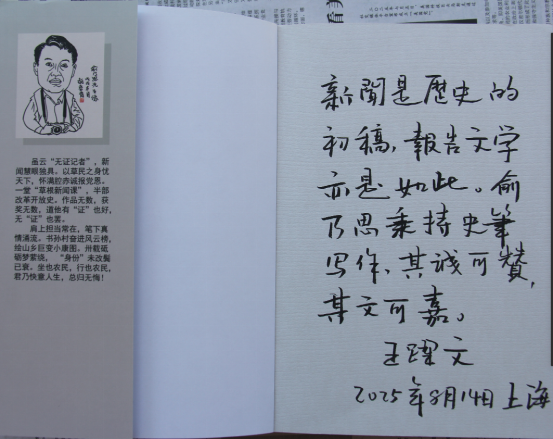 虽云“无证记者”，新
闻慧眼独具。以草民之身忧
天下，怀满腔赤诚报党恩。
一堂“草根新闻课”，半部
改革开放史。作品无数，获
奖无数，道他有“证”也好，
无“证”也罢。
肩上担当常在，笔下真
情涌流。书孙村奋进风云榜，
绘山乡巨变小康图。卅载砥
砺梦萦绕，“身份”未改鬓
已衰。坐也农民，行也农民，
君乃快意人生，总归无悔！
新聞是歷史的
初稿，報告文学
亦是如此。俞
乃思秉持史筆
写作，其诚可贊，
其文可嘉。
王躍文
2025年8月14日上海